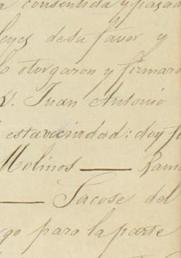 consentida y pasad
leyes de su favor y
otorgaron y firmaro
D. Juan Antonio
esta vecindad: doy f
Molinos — Ram
— Sacose del
go para la parte